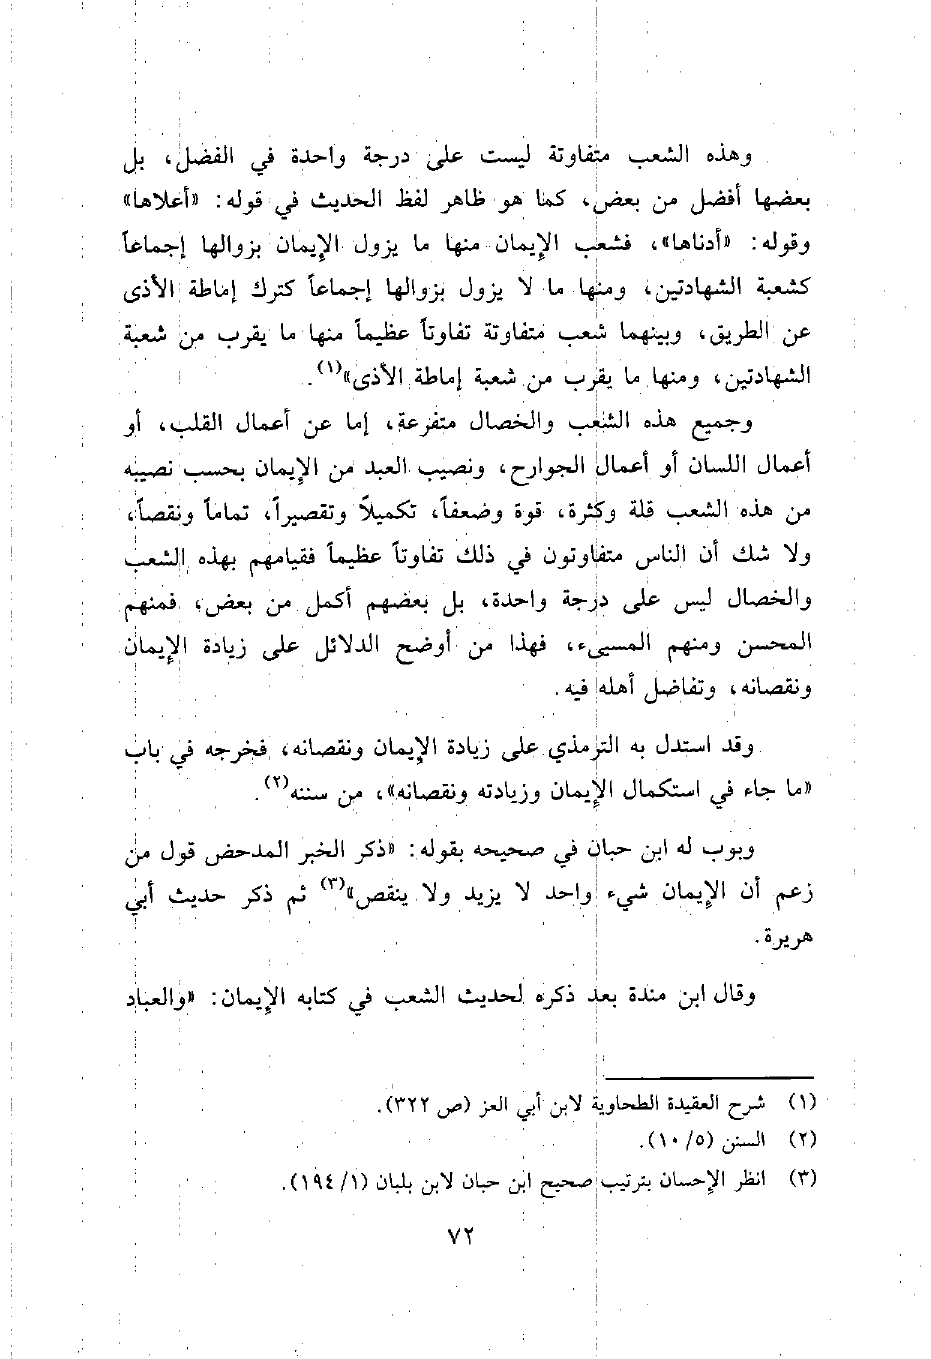 وهذه الشعب متفاوتة ليست على درجة واحدة في الفضل، بل
بعضها أفضل من بعض، كما هو ظاهر لفظ الحديث في قوله: «أعلاها»
وقوله: «أدناها»، فشعب الإيمان منها ما يزول الإيمان بزوالها إجماعاً
كشعبة الشهادتين، ومنها ما لا يزول بزوالها إجماعاً كترك إماطة الأذى
عن الطريق، وبينهما شعب متفاوتة تفاوتاً عظيماً منها ما يقرب من شعبة
الشهادتين، ومنها ما يقرب من شعبة إماطة الأذى»(١).
وجميع هذه الشعب والخصال متفرعة، إما عن أعمال القلب، أو
أعمال اللسان أو أعمال الجوارح، ونصيب العبد من الإيمان بحسب نصيبه
من هذه الشعب قلة وكثرة، قوة وضعفاً، تكميلاً وتقصيراً، تماماً ونقصاً،
ولا شك أن الناس متفاوتون في ذلك تفاوتاً عظيماً فقيامهم بهذه الشعب
والخصال ليس على درجة واحدة، بل بعضهم أكمل من بعض، فمنهم
المحسن ومنهم المسيء، فهذا من أوضح الدلائل على زيادة الإيمان
ونقصانه، وتفاضل أهله فيه.
وقد استدل به الترمذي على زيادة الإيمان ونقصانه، فخرجه في باب
«ما جاء في استكمال الإيمان وزيادته ونقصانه»، من سننه(٢).
وبوب له ابن حبان في صحيحه بقوله: «ذكر الخبر المدحض قول من
زعم أن الإيمان شيء واحد لا يزيد ولا ينقص»(٣) ثم ذكر حديث أبي
هريرة.
وقال ابن مندة بعد ذكره لحديث الشعب في كتابه الإيمان: «والعباد
(١) شرح العقيدة الطحاوية لابن أبي العز (ص ٣٢٢).
(٢) السنن (١٠/٥).
(٣) انظر الإحسان بترتيب صحيح ابن حبان لابن بلبان (١٩٤/١).
٧٢